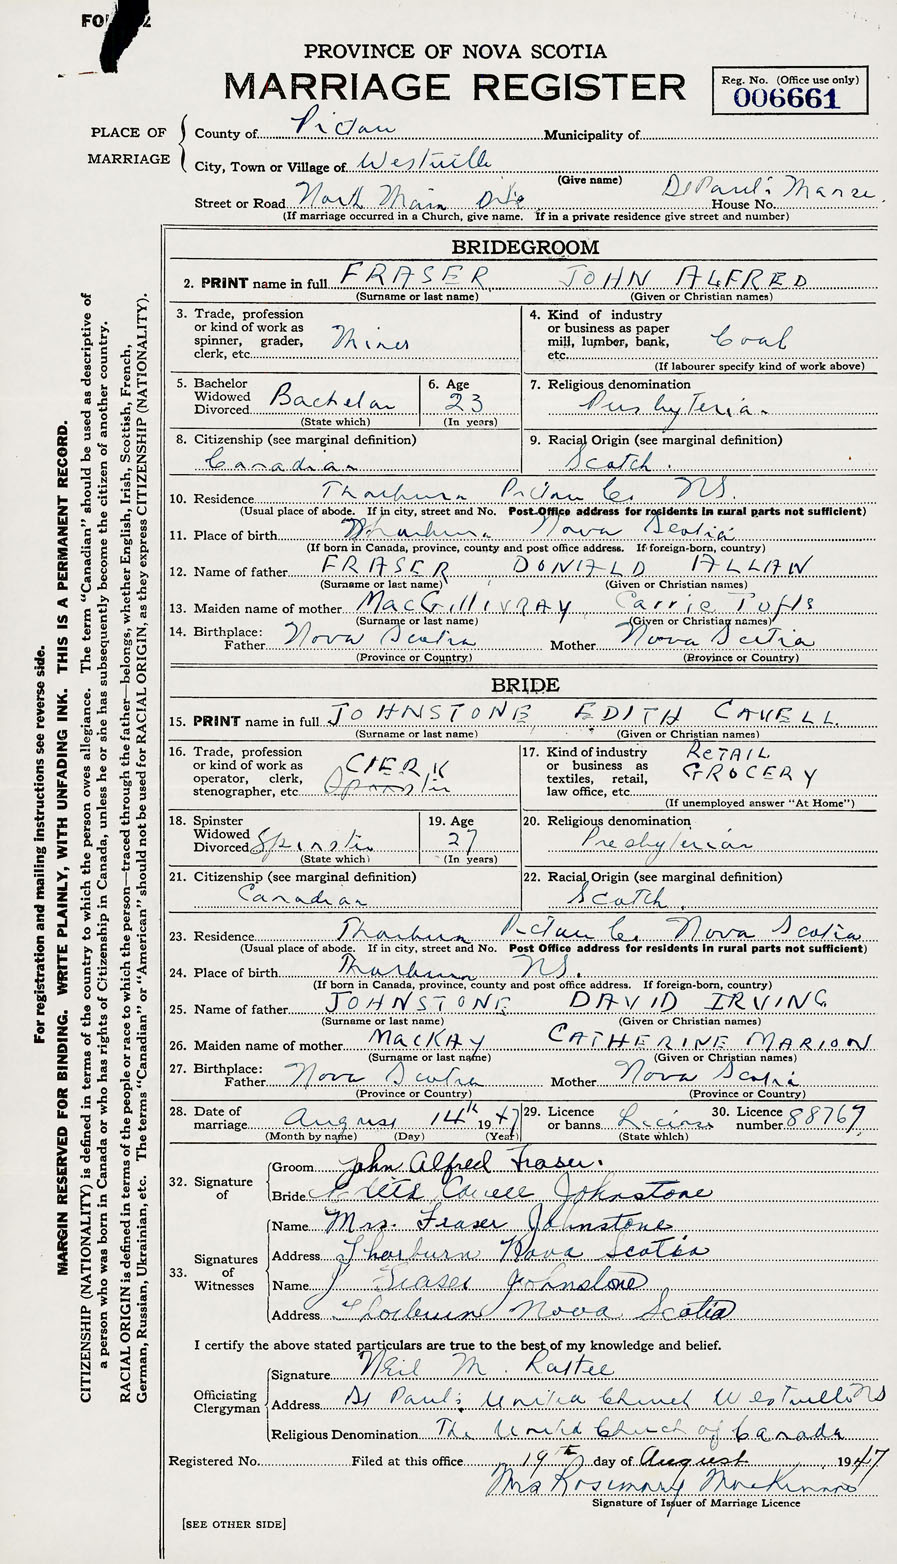 PROVINCE OF NOVA SCOTIA
MARRIAGE REGISTER
Reg. No. (Office use only)
006661
PLACE OF MARRIAGE
County of Pictou Municipality of
City, Town or Village of Westville
(Give name)
Street or Road North Main House No. St Paul's Manse
(If marriage occurred in a Church, give name. If in a private residence give street and number)
BRIDEGROOM
2. PRINT name in full FRASER JOHN ALFRED
(Surname or last name) (Given or Christian names)
3. Trade, profession or kind of work as spinner, grader, clerk, etc. Miner
4. Kind of industry or business as paper mill, lumber, bank, etc. Coal
(If labourer specify kind of work above)
5. Bachelor Widowed Divorced Bachelor
(State which)
6. Age 23
(In years)
7. Religious denomination Presbyterian
8. Citizenship (see marginal definition) Canadian
9. Racial Origin (see marginal definition) Scotch.
10. Residence Thorburn Pictou Co. NS.
(Usual place of abode. If in city, street and No. Post Office address for residents in rural parts not sufficient)
11. Place of birth Thorburn Nova Scotia
(If born in Canada, province, county and post office address. If foreign-born, country)
12. Name of father FRASER DONALD ALLAN
(Surname or last name) (Given or Christian names)
13. Maiden name of mother MacGillivRAY Carrie Tufts
(Surname or last name) (Given or Christian names)
14. Birthplace: Father Nova Scotia Mother Nova Scotia
(Province or Country) (Province or Country)
BRIDE
15. PRINT name in full JOHNSTONE EDITH CAVELL
(Surname or last name) (Given or Christian names)
16. Trade, profession or kind of work as operator, clerk, stenographer, etc. ClERK
17. Kind of industry or business as textiles, retail, law office, etc. RETAIL GROCERY
(If unemployed answer "At Home")
18. Spinster Widowed Divorced Spinster
(State which)
19. Age 27
(In years)
20. Religious denomination Presbyterian
21. Citizenship (see marginal definition) Canadian
22. Racial Origin (see marginal definition) Scotch.
23. Residence Thorburn Pictou Co. Nova Scotia
(Usual place of abode. If in city, street and No. Post Office address for residents in rural parts not sufficient)
24. Place of birth Thorburn NS.
(If born in Canada, province, county and post office address. If foreign-born, country)
25. Name of father JOHNSTONE DAVID IRVING
(Surname or last name) (Given or Christian names)
26. Maiden name of mother MacKAY CATHERINE MARION
(Surname or last name) (Given or Christian names)
27. Birthplace: Father Nova Scotia Mother Nova Scotia
(Province or Country) (Province or Country)
28. Date of marriage August 14th 1947
(Month by name) (Day) (Year)
29. Licence or banns License
(State which)
30. Licence number 88767
32. Signature of
Groom John Alfred Fraser.
Bride Edith Cavell Johnstone
33. Signatures of Witnesses
Name Mrs. Fraser Johnstone
Address Thorburn Nova Scotia
Name J Fraser Johnstone
Address Thorburn Nova Scotia
I certify the above stated particulars are true to the best of my knowledge and belief.
Officiating Clergyman
Signature Neil M. Rattee
Address St Paul's United Church Westville NS
Religious Denomination The United Church of Canada
Registered No. Filed at this office 19th day of August 1947
Mrs Rosemary MacKinnon
Signature of Issuer of Marriage Licence
[SEE OTHER SIDE]
For registration and mailing instructions see reverse side.
MARGIN RESERVED FOR BINDING. WRITE PLAINLY, WITH UNFADING INK. THIS IS A PERMANENT RECORD.
CITIZENSHIP (NATIONALITY) is defined in terms of the country to which the person owes allegiance. The term "Canadian" should be used as descriptive of
a person who was born in Canada or who has rights of Citizenship in Canada, unless he or she has subsequently become the citizen of another country.
RACIAL ORIGIN is defined in terms of the people or race to which the person—traced through the father—belongs, whether English, Irish, Scottish, French,
German, Russian, Ukrainian, etc. The terms "Canadian" or "American" should not be used for RACIAL ORIGIN, as they express CITIZENSHIP (NATIONALITY).